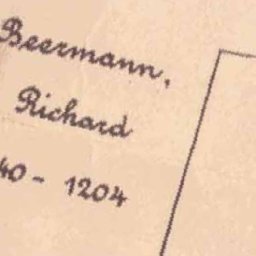 Beermann,
Richard
40 - 1204